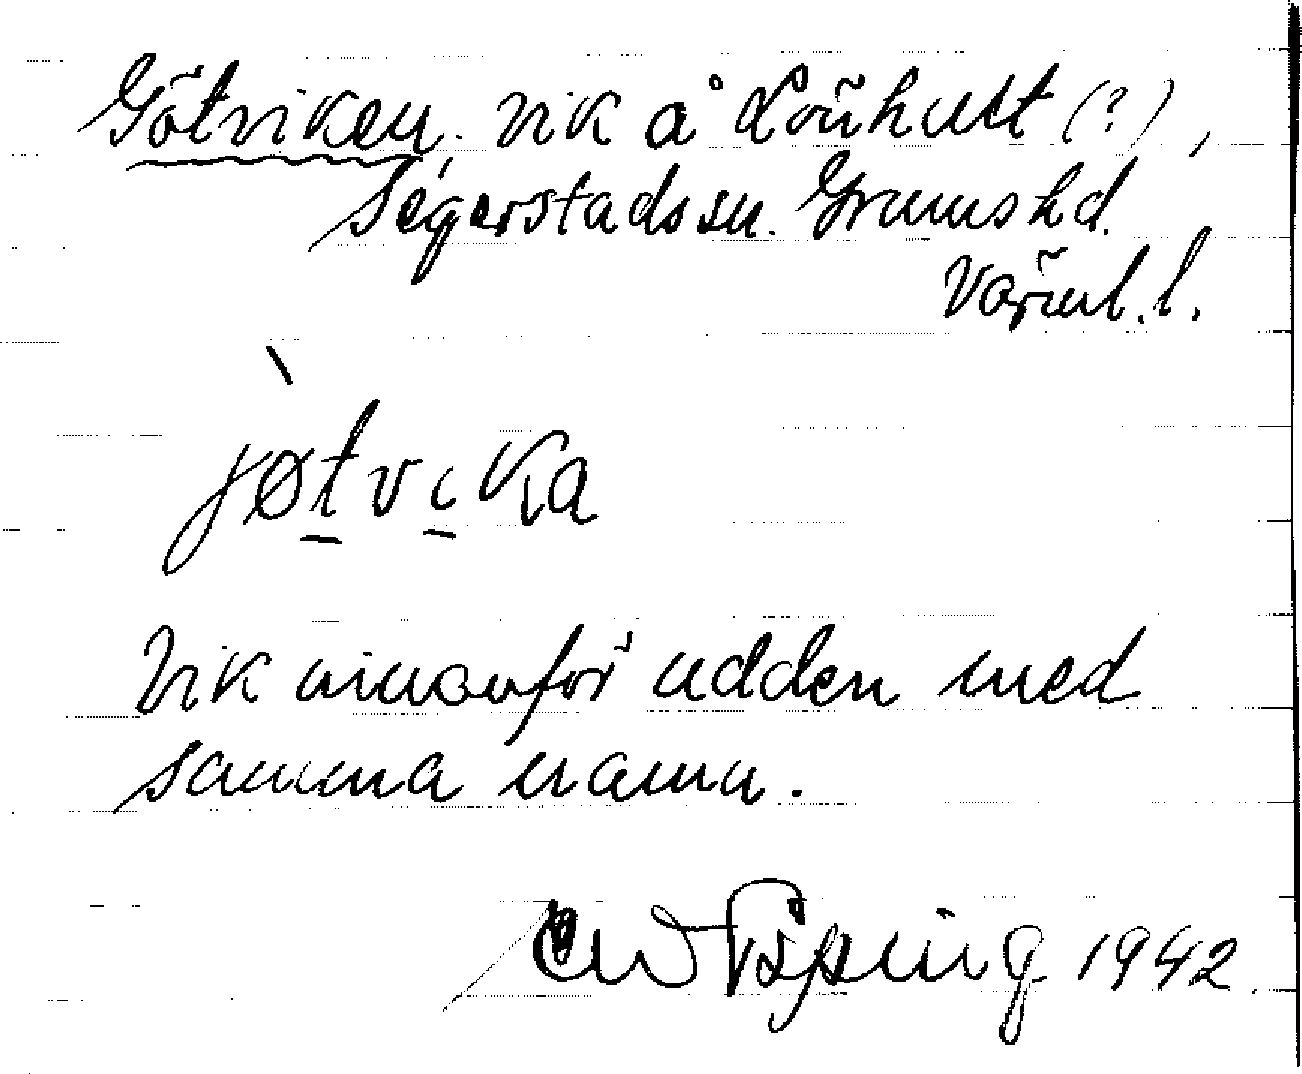 Götviken. vik å Lövhult (?),
Segerstads sn. Grums hd.
Värml. l.
jøtvika
Vik innanför udden med
samma namn.
1942.